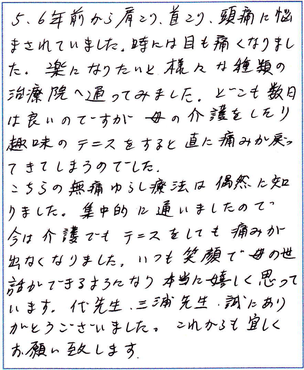 5、6年前から肩こり、首こり、頭痛に悩
まされていました。時には目も痛くなりまし
た。楽になりたいと様々な種類の
治療院へ通ってみました。どこも数日
は良いのですが 母の介護をしたり
趣味のテニスをすると直に痛みが戻っ
てきてしまうのでした。
こちらの無痛ゆらし療法は偶然に知
りました。集中的に通いましたので
今は介護でもテニスをしても痛みが
出なくなりました。いつも笑顔で母の世
話ができるようになり本当に嬉しく思って
います。代先生、三浦先生、誠にあり
がとうございました。これからも宜しく
お願い致します。